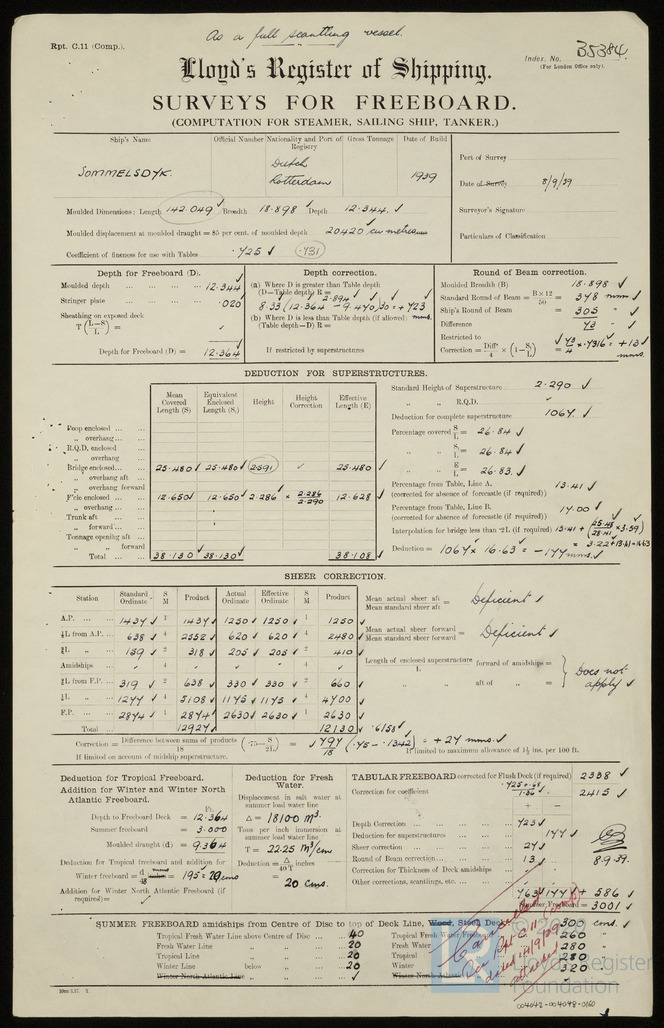 As a full scantling vessel.
Rpt. C.11 (Comp.).
Index. No. 35384.
(For London Office only).
Lloyd's Register of Shipping.
SURVEYS FOR FREEBOARD.
(COMPUTATION FOR STEAMER, SAILING SHIP, TANKER.)
Ship's Name Official Number Nationality and Port of Registry Gross Tonnage Date of Build
SOMMELSDYK. Dutch Rotterdam 1939
Port of Survey
Date of Survey 8/9/39
Surveyor's Signature
Particulars of Classification
Moulded Dimensions: Length 142.049 Breadth 18.898 Depth 12.344
Moulded displacement at moulded draught = 85 per cent. of moulded depth 20420 cu metres
Coefficient of fineness for use with Tables .725 .731
Depth for Freeboard (D).
Moulded depth 12.344
Stringer plate .020
Sheathing on exposed deck
T (L-S/L) =
Depth for Freeboard (D) = 12.364
Depth correction.
(a) Where D is greater than Table depth
(D—Table depth) R =
2.894
8.33 (12.364 - 9.470) 30 = + 723 mms.
(b) Where D is less than Table depth (if allowed)
(Table depth—D) R =
If restricted by superstructures
Round of Beam correction.
Moulded Breadth (B) 18.898
Standard Round of Beam = B×12/50 = 378 mms
Ship's Round of Beam = 305
Difference 73
Restricted to
Correction = Diff/4 × (1-S1/L) = 73/4 × .7316 = +13 mms.
DEDUCTION FOR SUPERSTRUCTURES.
Mean Covered Length (S) Equivalent Enclosed Length (S1) Height Height Correction Effective Length (E)
Poop enclosed
„ overhang
R.Q.D. enclosed
„ overhang
Bridge enclosed 25.480 25.480 2.591 25.480
„ overhang aft
„ overhang forward
F'cle enclosed 12.650 12.650 2.286 × 2.286/2.290 12.628
„ overhang
Trunk aft
„ forward
Tonnage opening aft
„ „ forward
Total 38.130 38.130 38.108
Standard Height of Superstructure 2.290
„ „ R.Q.D.
Deduction for complete superstructure 1067
Percentage covered S/L = 26.84
„ „ S1/L = 26.84
„ „ E/L = 26.83
Percentage from Table, Line A. 13.41
(corrected for absence of forecastle (if required))
Percentage from Table, Line B. 17.00
(corrected for absence of forecastle (if required))
Interpolation for bridge less than ·2L (if required) 13.41 + (25.48/28.41 × 3.59)
= 3.22 + 13.41 = 16.63
Deduction = 1067 × 16.63 = - 177 mms.
SHEER CORRECTION.
Station Standard Ordinate S M Product Actual Ordinate Effective Ordinate S M Product
A.P. 1437 1 1437 1250 1250 1 1250
⅙L from A.P. 638 4 2552 620 620 4 2480
⅓L „ 159 2 318 205 205 2 410
Amidships 4 4
⅓L from F.P. 319 2 638 330 330 2 660
⅙L „ 1277 4 5108 1175 1175 4 4700
F.P. 2874 1 2874 2630 2630 1 2630
Total 12927 12130
Mean actual sheer aft / Mean standard sheer aft = Deficient
Mean actual sheer forward / Mean standard sheer forward = Deficient
Length of enclosed superstructure / L forward of amidships =
„ aft of „ =
Does not apply
Correction = Difference between sums of products / 18 (·75 - S/2L) = 797/18 (.75 - .1342) = + 27 mms.
.6158
If limited on account of midship superstructure.
If limited to maximum allowance of 1½ ins. per 100 ft.
Deduction for Tropical Freeboard.
Addition for Winter and Winter North Atlantic Freeboard.
Ft.
Depth to Freeboard Deck = 12.364
Summer freeboard = 3.000
Moulded draught (d) = 9.364
Deduction for Tropical freeboard and addition for
Winter freeboard = d/48 = 195 = 20 cms.
Addition for Winter North Atlantic Freeboard (if required) =
Deduction for Fresh Water.
Displacement in salt water at summer load water line
Δ = 18100 m³
Tons per inch immersion at summer load water line
T = 22.25 m³/cm
Deduction = Δ/40T inches
= 20 cms.
TABULAR FREEBOARD corrected for Flush Deck (if required) 2338
Correction for coefficient .725+.68/1.36 2415
+ -
Depth Correction 723
Deduction for superstructures 177
Sheer correction 27
Round of Beam correction 13
Correction for Thickness of Deck amidships
Other corrections, scantlings, etc.
763 177 + 586
Summer Freeboard = 3001
8.9.39.
SUMMER FREEBOARD amidships from Centre of Disc to top of Deck Line, Wood, Steel, Deck 300 cms.
Tropical Fresh Water Line above Centre of Disc 40 Tropical Fresh Water 260
Fresh Water Line „ „ 20 Fresh Water 280
Tropical Line „ „ 20 Tropical 280
Winter Line below „ 20 Winter 320
Winter North Atlantic Line „ „ Winter North Atlantic
Cancelled
See Rpt C 11 (Comp)
dated 14/9/39
attached
Lloyd's Register
Foundation
004042-004048-0160